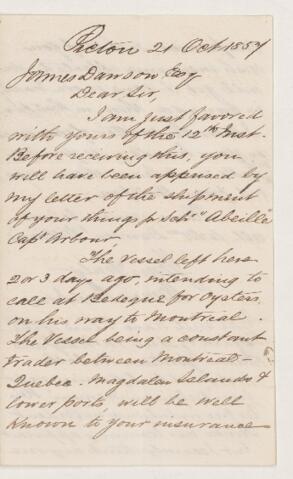 Pictou 21 Oct 1857
James Dawson Esq
Dear Sir,
I am just favored
with yours of the 12th Inst.
Before receiving this, you
will have been apprised by
my letter of the shipment
of your things p. Schr "Abeille"
Capt Arbour,
The Vessel left here
2 or 3 day ago, intending to
call at Bedeque for Oysters,
on his way to Montreal.
The Vessel being a constant
trader between Montreal -
Quebec. Magdalen Islands &
lower ports, will be well
known to your insurance